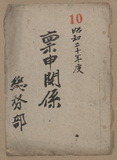 10
昭和二十年度
稟申関係
総務部